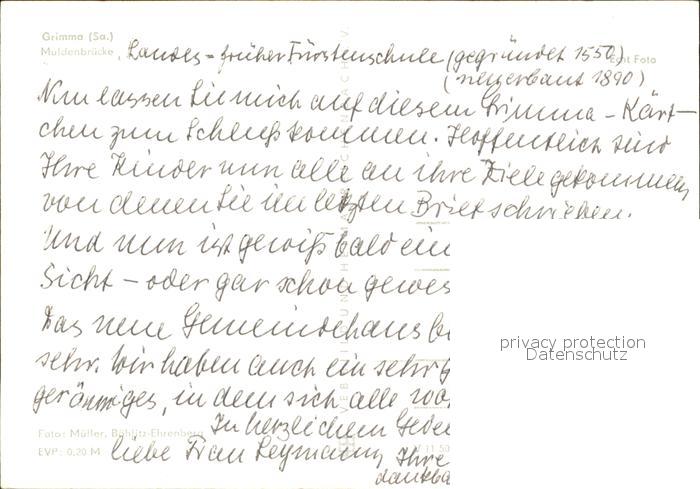 Grimma (Sa.)
Muldenbrücke, Landes- früher Fürstenschule (gegründet 1550)
Echt Foto
(neuerbaut 1890)
Nun lassen Sie mich auf diesem Grimma-Kärt-
chen zum Schluß kommen. Hoffentlich sind
Ihre Kinder nun alle an ihre Ziele gekommen,
von denen Sie im letzten Brief schrieben.
Und nun ist gewiß bald ein
Sicht - oder gar schon gewes
Das neue Gemeindehaus be
sehr. Wir haben auch ein sehr g
geräumiges, in dem sich alle wo
privacy protection
Datenschutz
In herzlichem Geden
Foto: Müller, Böhlitz-Ehrenberg
liebe Frau Leymann, Ihre
EVP: 0,20 M
dankba